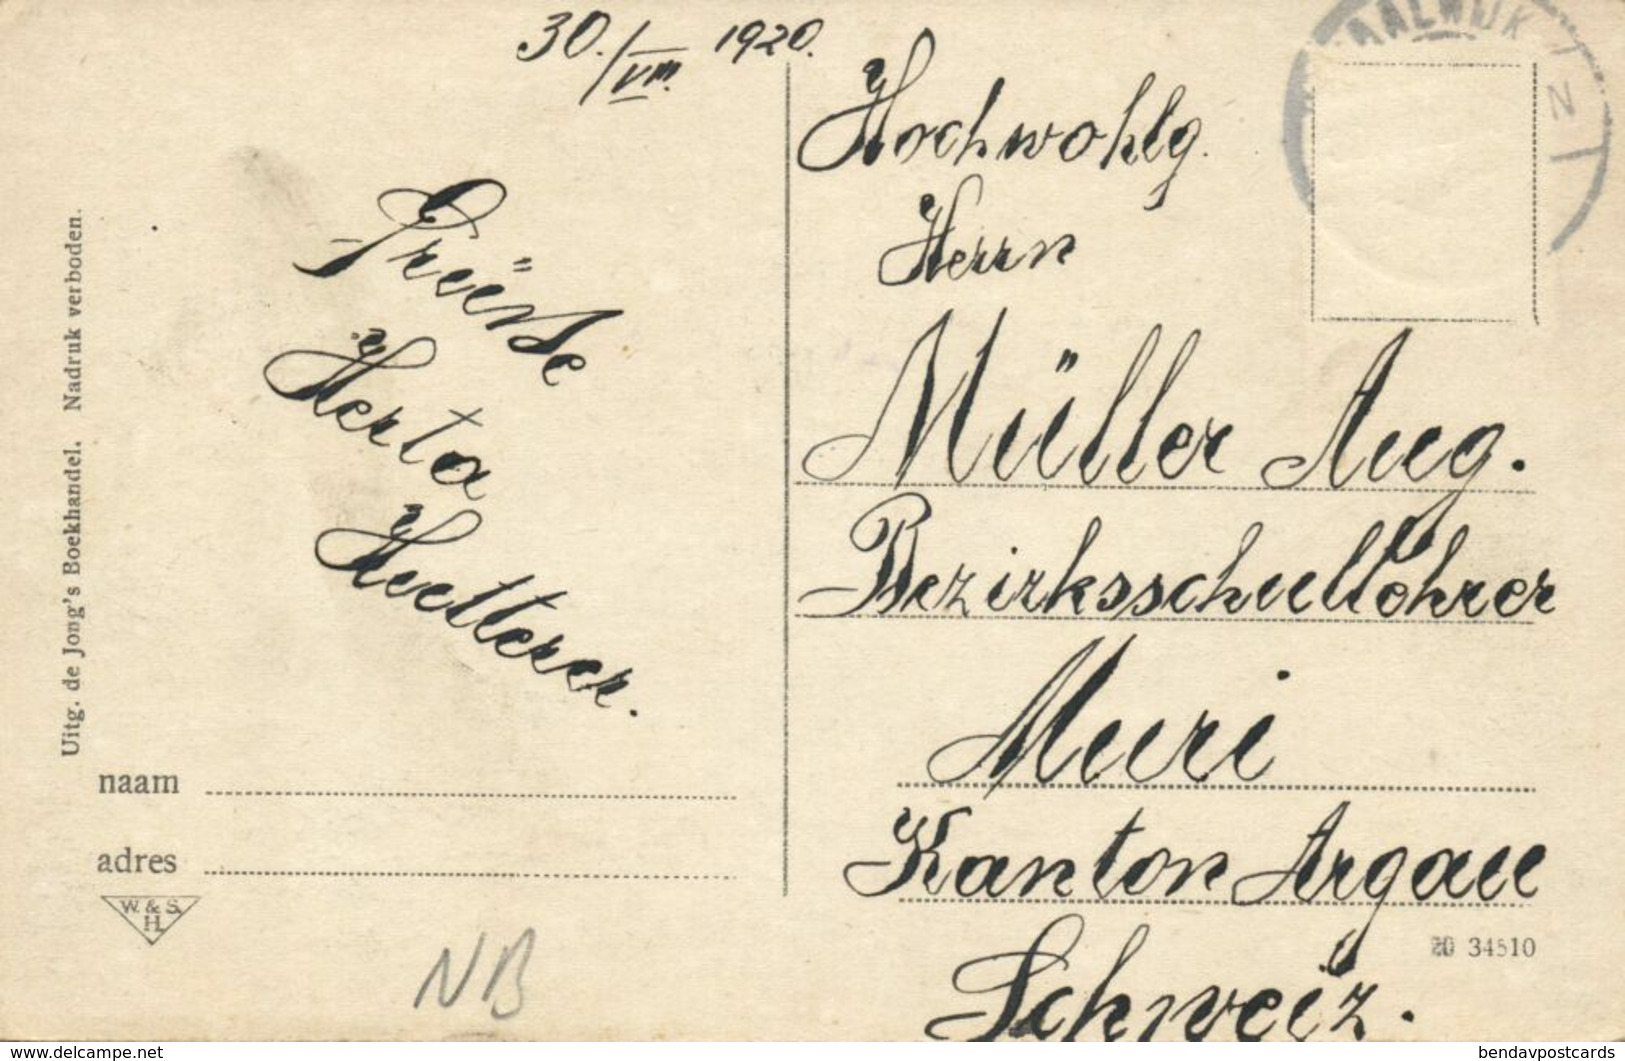 30./VIII. 1920.
AALWIJK
N
Hochwohlg.
Herrn
Müller Aug.
Bezirksschullehrer
Muri
Kanton Argau
Schweiz.
Grüsse
Herta
Huetterer.
Uitg. de Jong's Boekhandel. Nadruk verboden.
naam
adres
W. & S.
H.
20 34510
NB
www.delcampe.net
bendavpostcards